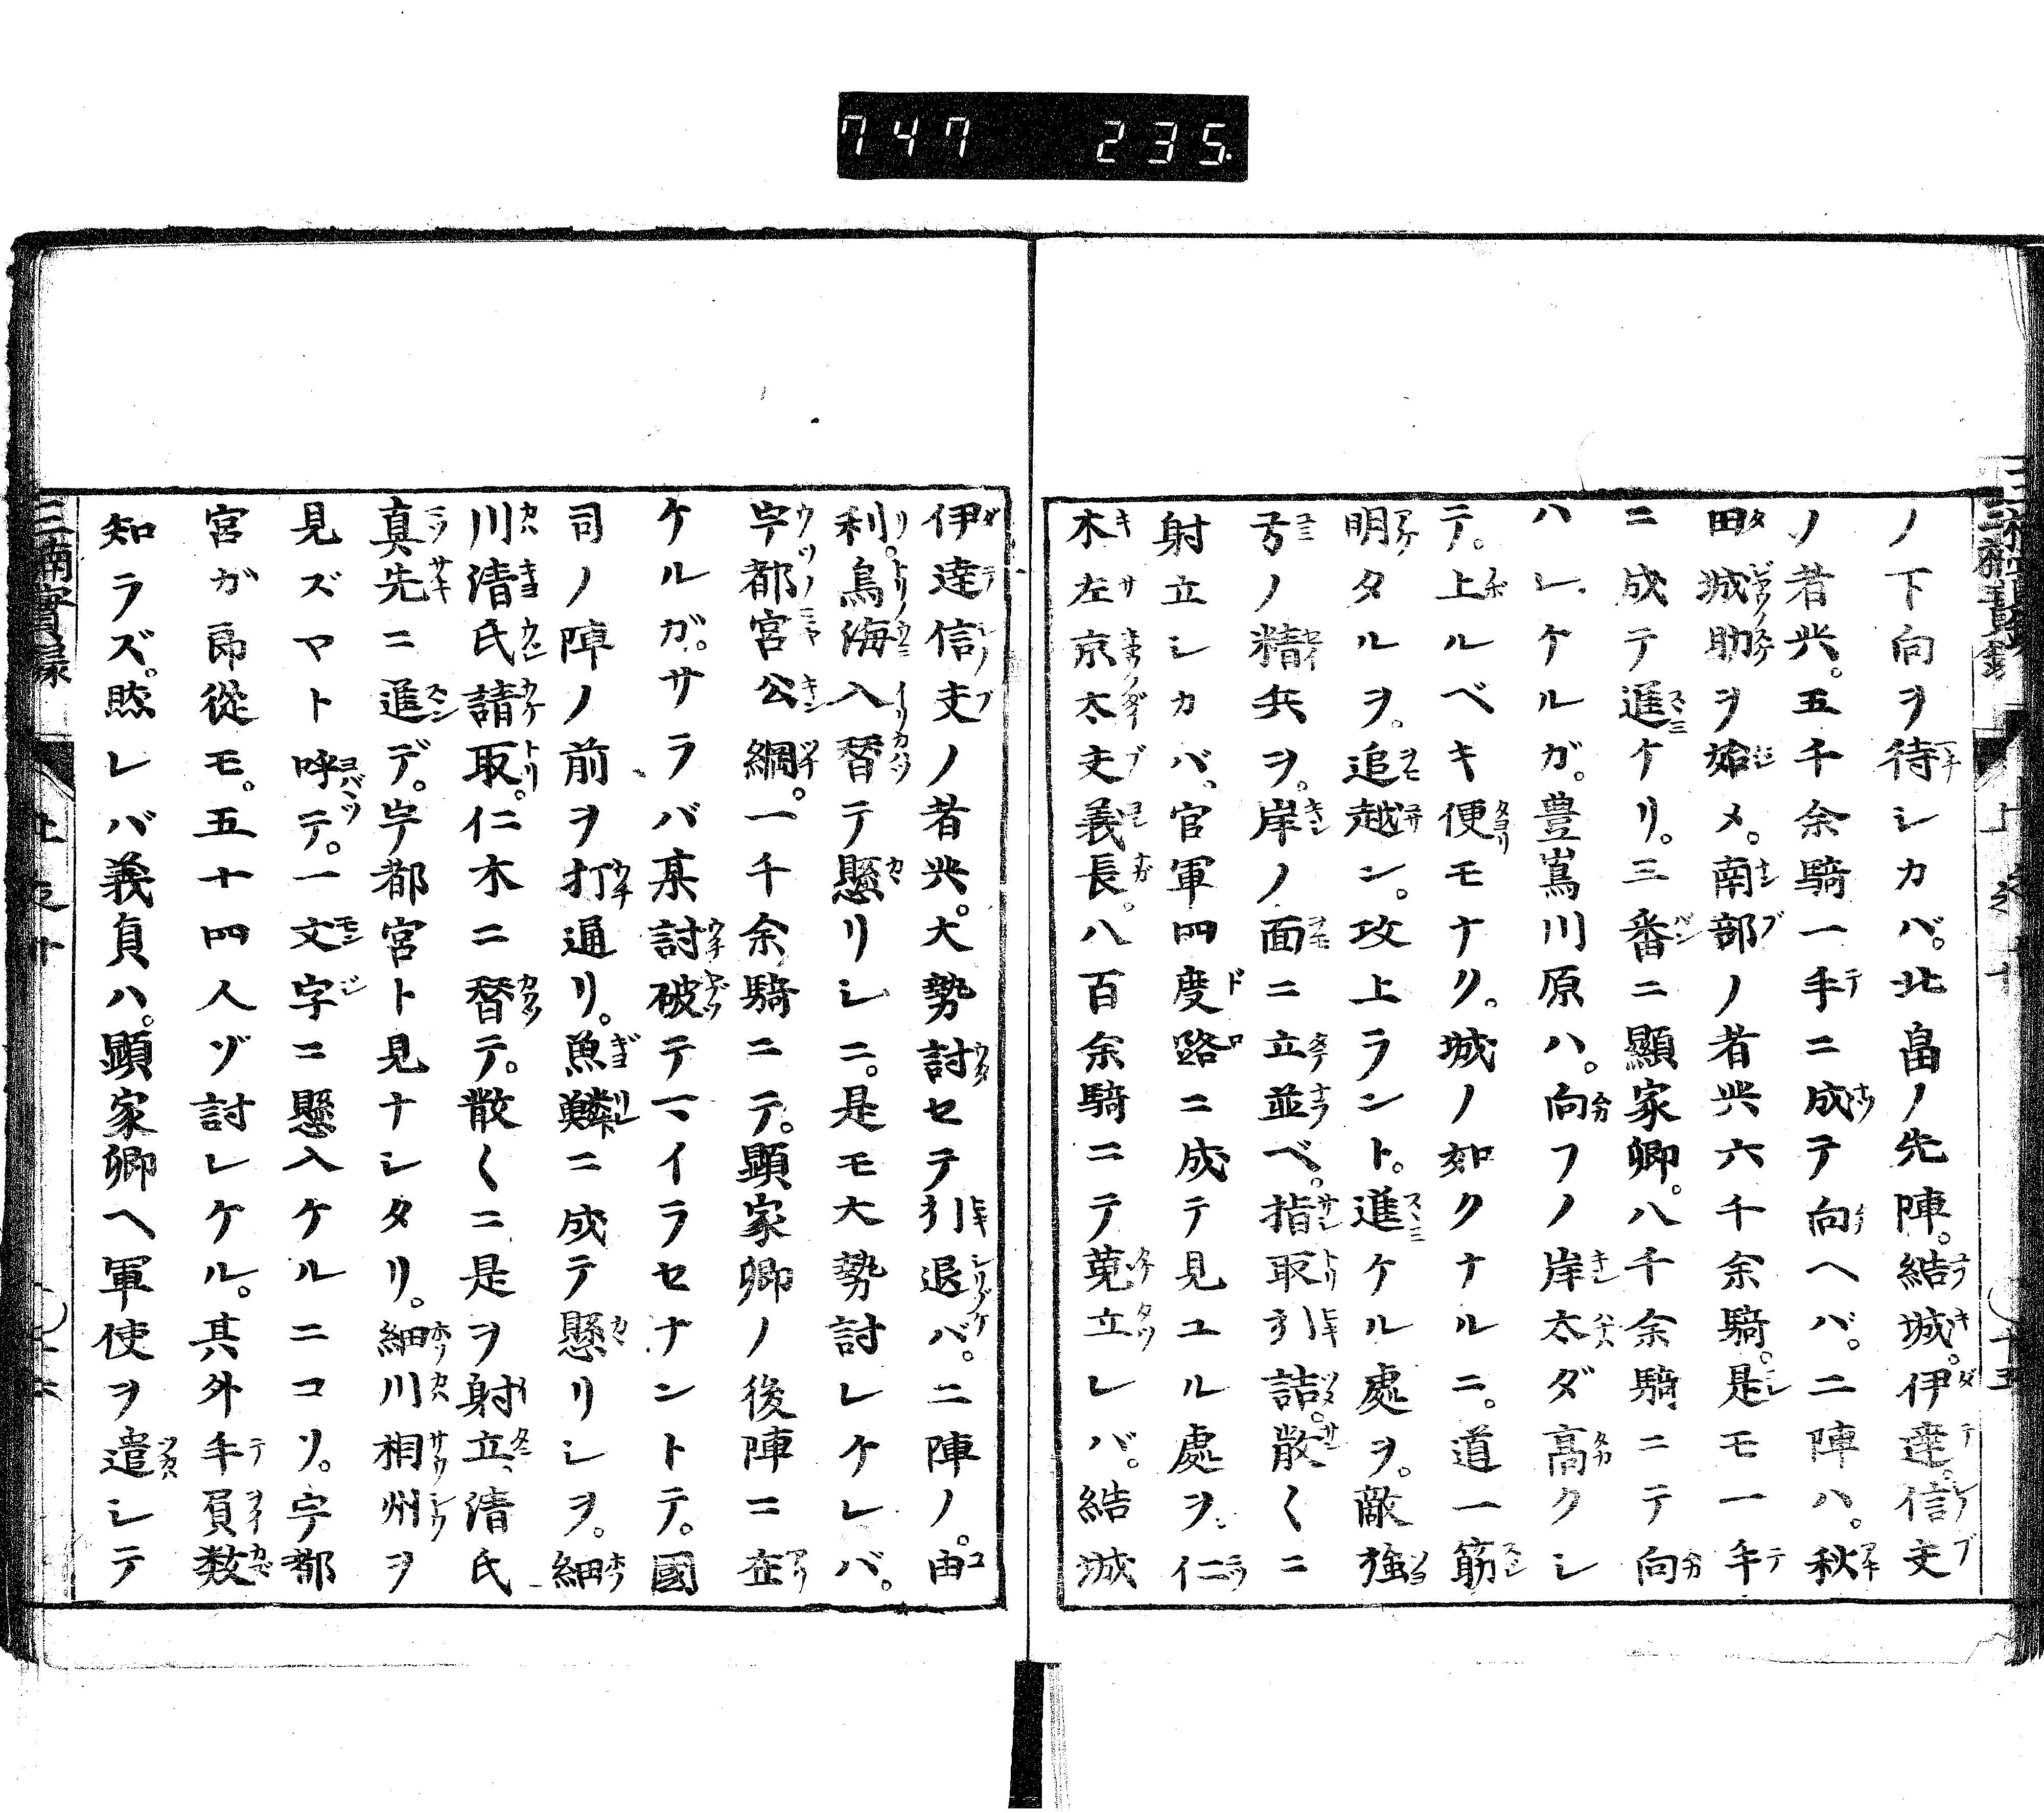 747 235
ノ下向ヲ待シカバ。北畠ノ先陣。結城。伊達。信夫
ノ者共。五千余騎一手ニ成テ向ヘバ。二陣ハ。秋
田城助ヲ始メ。南部ノ者共六千余騎。是モ一手
ニ成テ進ケリ。三番ニ顕家卿。八千余騎ニテ向
ハレケルガ。豊嶌川原ハ。向フノ岸太ダ高クシ
テ。上ルベキ便モナリ。城ノ如クナルニ。道一筋
明タルヲ。追越ン。攻上ラント。進ケル處ヲ。敵強
弓ノ精兵ヲ。岸ノ面ニ立並ベ。指取引詰。散〱ニ
射立シカバ。官軍四度路ニ成テ見ユル處ヲ。仁
木左京太夫義長。八百余騎ニテ蒐立レバ。結城
伊達信夫ノ者共。大勢討セテ引退バ。二陣ノ。由
利。鳥海入替テ懸リシニ。是モ大勢討レケレバ。
宇都宮公綱。一千余騎ニテ。顕家卿ノ後陣ニ在
ケルガ。サラバ某討破テマイラセナントテ。國
司ノ陣ノ前ヲ打通リ。魚鱗ニ成テ懸リシヲ。細
川清氏請取。仁木ニ替テ。散〱ニ是ヲ射立、清氏
真先ニ進デ。宇都宮ト見ナシタリ。細川相州ヲ
見ズマト呼テ。一文字ニ懸入ケルニコソ。宇都
宮ガ郎從モ。五十四人ゾ討レケル。其外手負数
知ラズ。然レバ義貞ハ。顕家卿ヘ軍使ヲ遣シテ